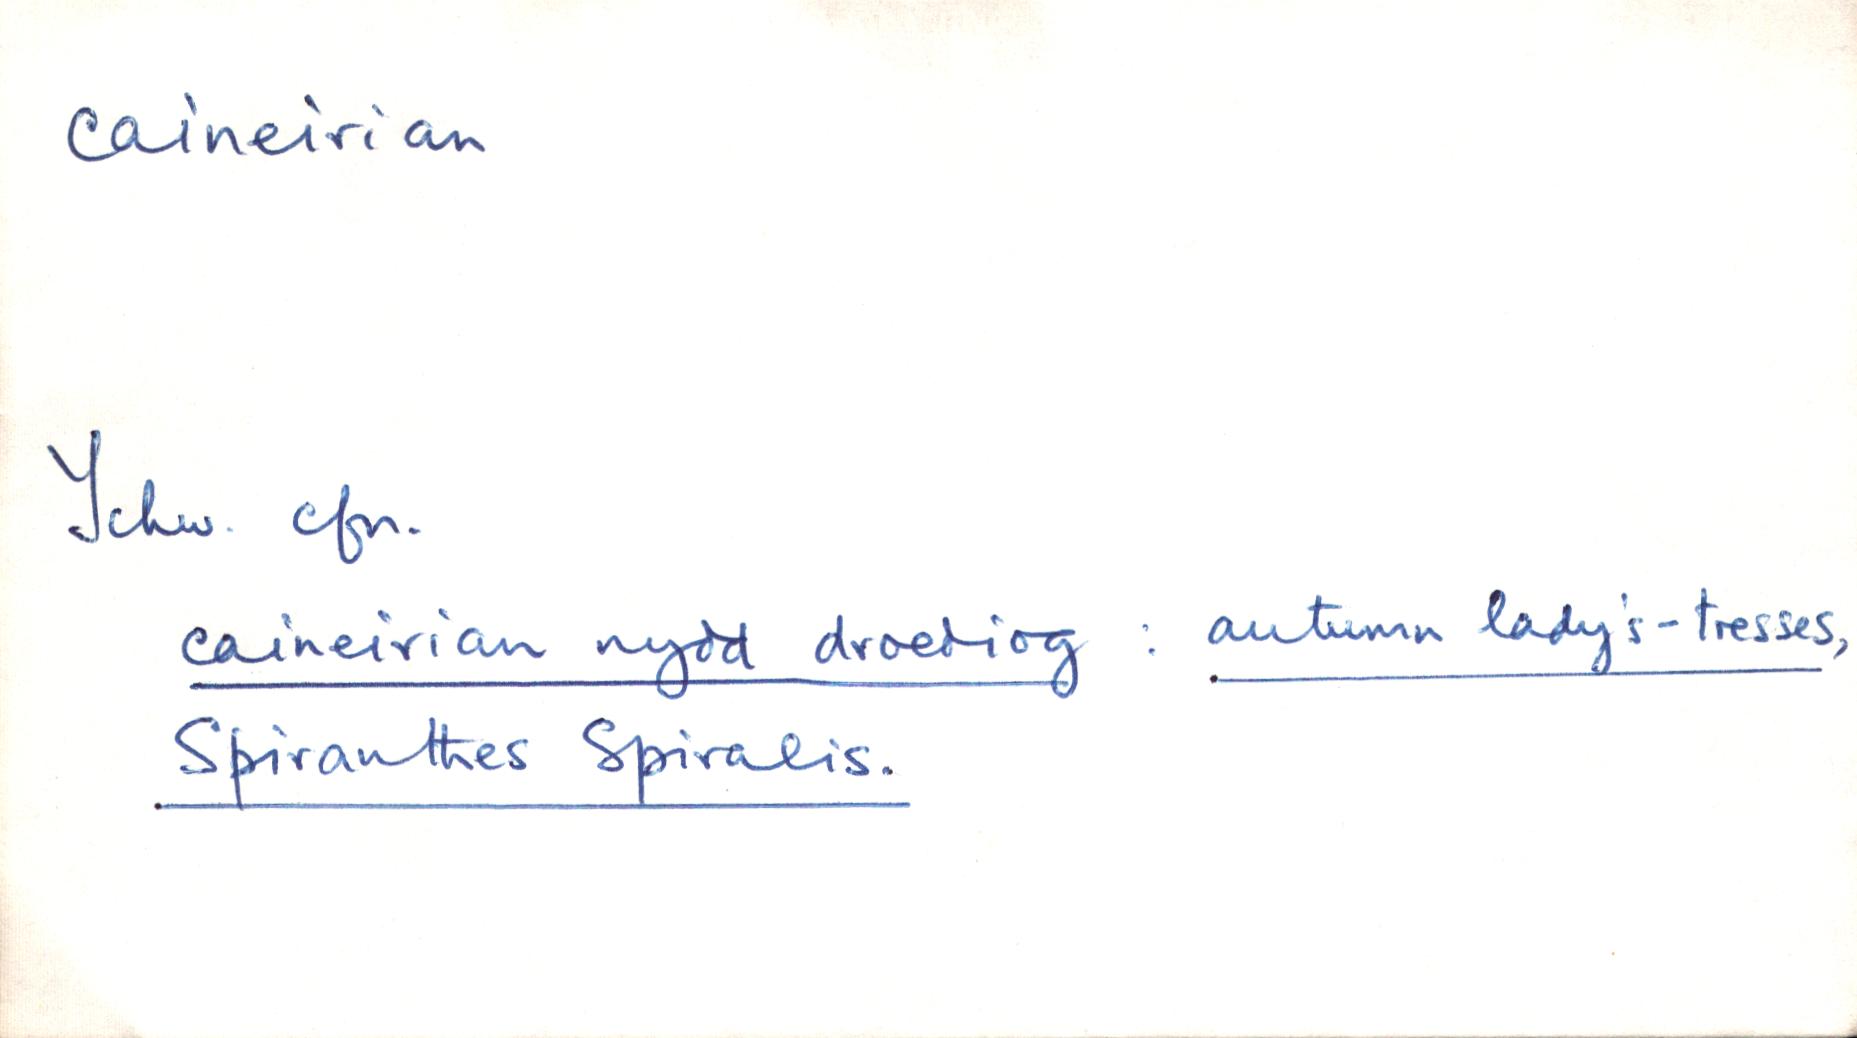 caineirian
Ychw. cfn.
caineirian nydd droediog : autumn lady's-tresses,
Spiranthes Spiralis.